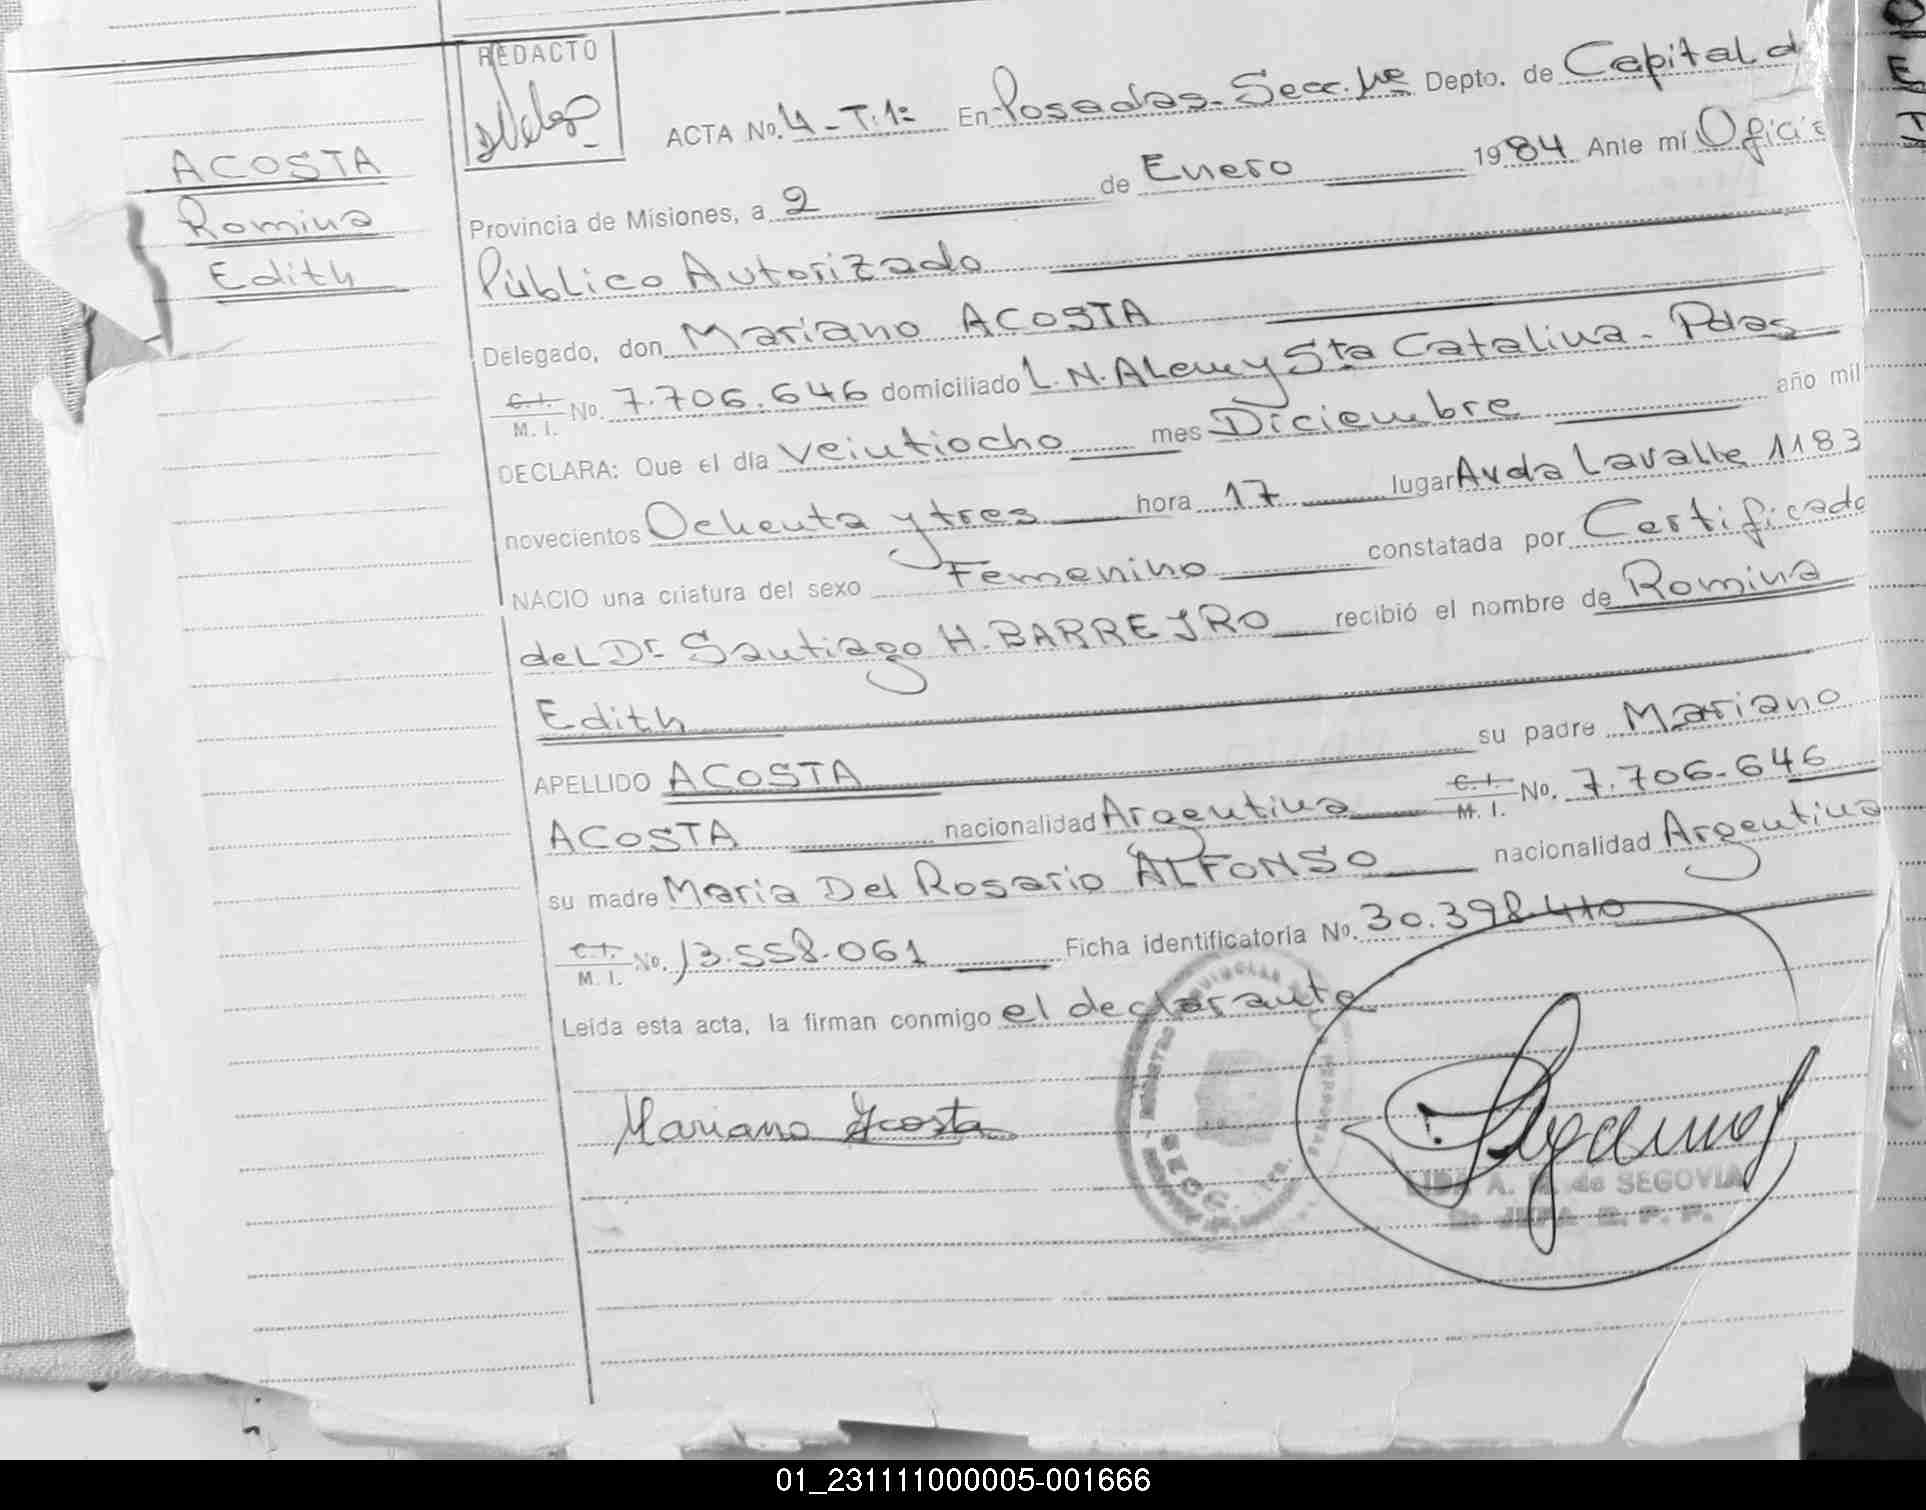 REDACTO
ACTA No. 4 - T.1º En Posadas - Secc. 1ra Depto. de Capital d
ACOSTA
Romina
Edith
Provincia de Misiones, a 2 de Enero 1984 Ante mí Oficial
Público Autorizado
Delegado, don Mariano ACOSTA
C.I. M. I. No. 7.706.646 domiciliado L.N. Alem y Sta Catalina - Pdas
DECLARA: Que el día veintiocho mes Diciembre año mil
novecientos Ochenta y tres hora 17 lugar Avda Lavalle 1183
NACIO una criatura del sexo Femenino constatada por Certificado
del Dr Santiago H. BARREYRO recibió el nombre de Romina
Edith
APELLIDO ACOSTA su padre Mariano
ACOSTA nacionalidad Argentina C.I. M. I. No. 7.706.646
su madre Maria Del Rosario ALFONSO nacionalidad Argentina
C.I. M. I. No. 13.558.061 Ficha identificatoria No. 30.398.410
Leída esta acta, la firman conmigo el declarante
Mariano Acosta
SECC. 1ra.
A. de SEGOVIA
JEFA
01_231111000005-001666